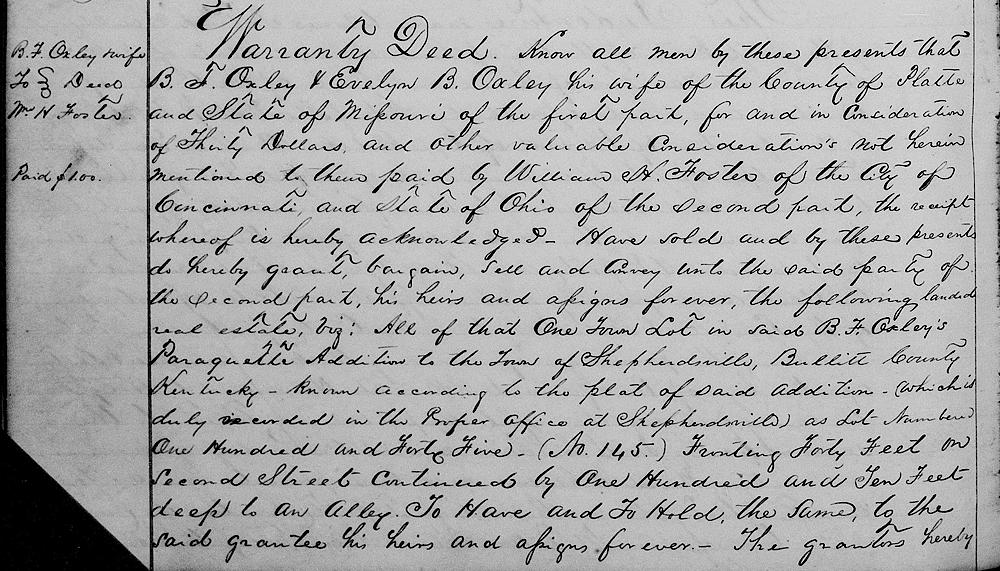 B. F. Oxley & wife
To } Deed
Wm H Foster.
Paid $1.00.
Warranty Deed. Know all men by these presents that
B. F. Oxley & Evelyn B. Oxley his wife of the County of Platte
and State of Missouri of the first part, for and in Consideration
of Thirty Dollars, and other valuable Consideration's not herein
mentioned to them paid by William H. Foster of the City of
Cincinnati, and State of Ohio of the second part, the receipt
whereof is hereby acknowledged - Have sold and by these presents
do hereby grant, bargain, sell and Convey unto the said party of
the second part, his heirs and assigns forever, the following landed
real estate, Viz: All of that One Town Lot in said B. F. Oxley's
Paraquette Addition to the Town of Shepherdsville, Bullitt County
Kentucky - known according to the plat of said addition - (which is
duly recorded in the Proper office at Shepherdsville) as Lot Numbered
One Hundred and Forty Five - (No. 145.) Fronting Forty Feet on
Second Street Continued by One Hundred and Ten Feet
deep to an Alley. To Have and To Hold, the same, to the
said grantee his heirs and assigns forever. - The grantors hereby